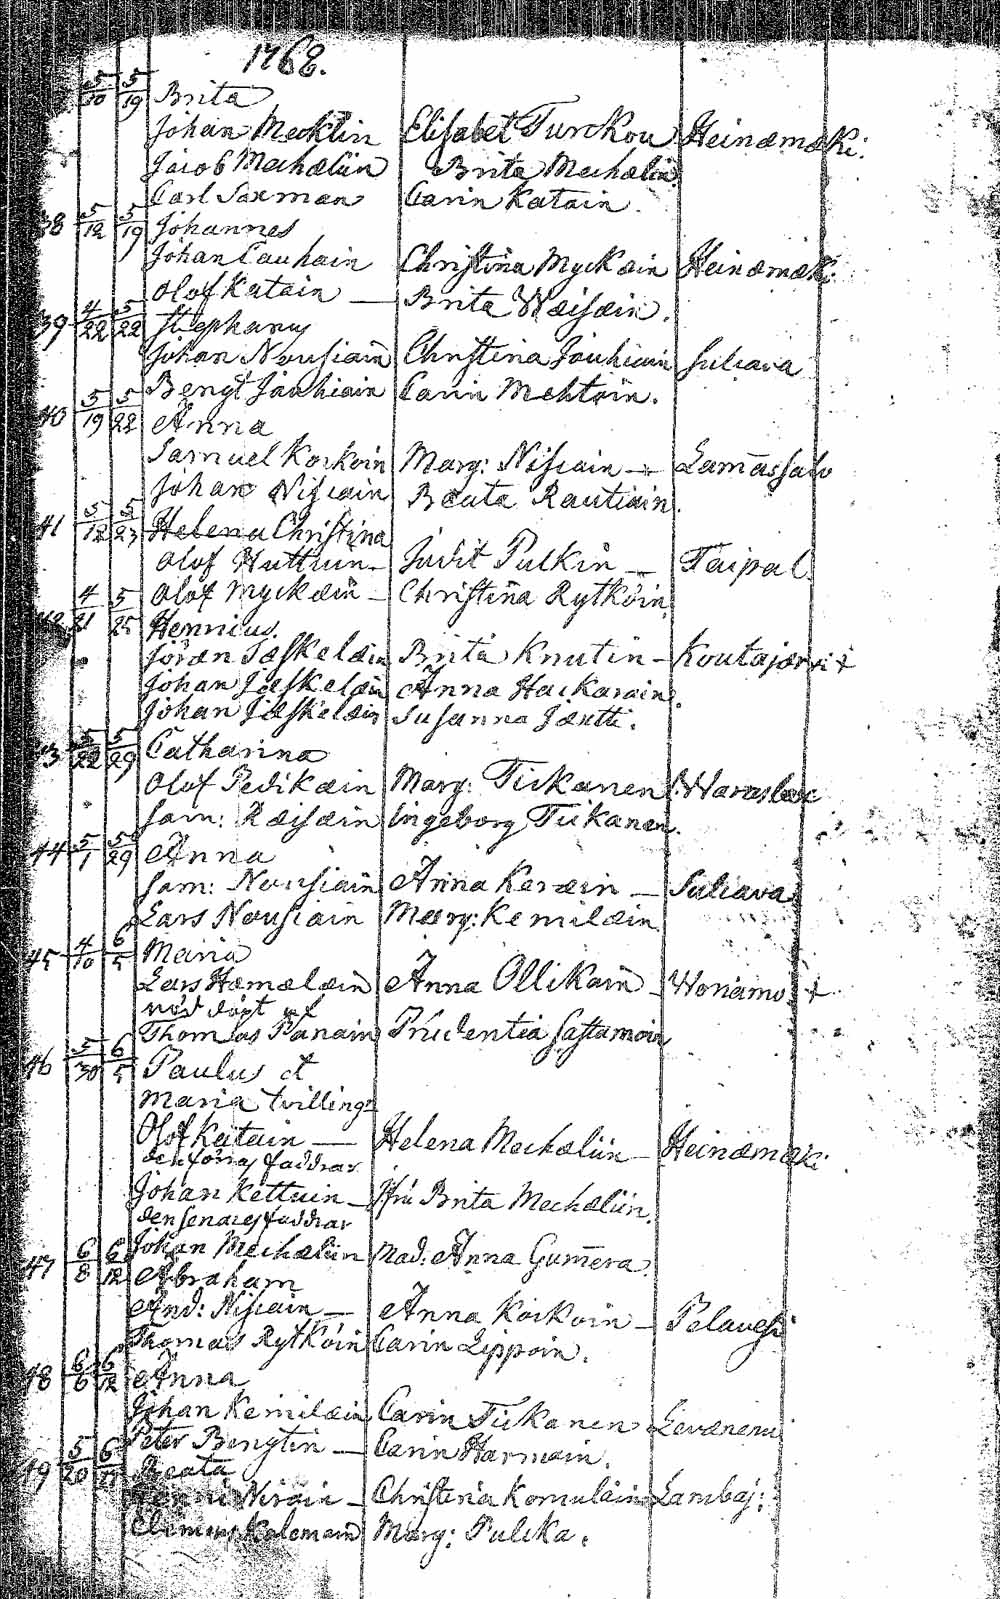 1768.
5/10 5/19 Brita
Johan Mecklin Elisabet Turckou Heinämäki.
Jacob Mechæliin Brita Mechælin.
Carl Saxman Carin Katain.
38 5/12 5/19 Johannes
Johan Cauhain Christina Myckæin Heinämäki
Olof Katain — Brita Wæisæin.
39 4/22 5/22 Stephanus
Johan Nousiain Christina Jauhiain Suliava
Bengt Jauhiain Carin Mehtoin.
40 5/19 5/22 Anna
Samuel Korkoin Marg: Nissain — Lam̄assalo
Johan Nissain Beata Rautiain.
41 5/12 5/23 Helena Christina
Olof Huttun — Judit Pulkin — Taipal
Olof Myckæin — Christina Rytköin.
42 4/21 5/25 Henricus.
Jöran Jæskelæin Brita Knutin — Koutajærvi †
Johan Jæskelæin Anna Hackarain.
Johan Jæskelæin Susanna Jæntti.
43 5/22 5/29 Catharina
Olof Pedikæin Marg: Tickanen
Sam: Ræisæin Ingeborg Tickanen.
44 5/1 5/29 Anna
Sam: Nousiain Anna Keræin — Suliava
Lars Nousiain Marg: Kemilæin
45 4/10 6/5 Maria
Lars Hæmælæin Anna Ollikain — Woniamo. †
nöd döpt af
Thomas Panain Prudentia Sastamoin
46 5/30 6/5 Paulus et
Maria tvilling:
Olof Katain — Helena Mechæliin — Heinämäki
den förres faddrar
Johan Kettuin — Hfru Brita Mechæliin.
den senares faddrar
Johan Mechæliin Mad: Anna Gum̄era.
47 6/8 6/12 Abraham
And: Nissain — Anna Korkoin — Pelavesi
Thomas Rytköin Carin Lippoin.
48 6/6 6/12 Anna
Johan Kemilæin Carin Tickanen Levänemi
Peter Bengtin — Carin Harmoin.
49 5/20 Beata
Christina Komulain Lambaj:
Clemens Kolemain Marg: Pulcka.